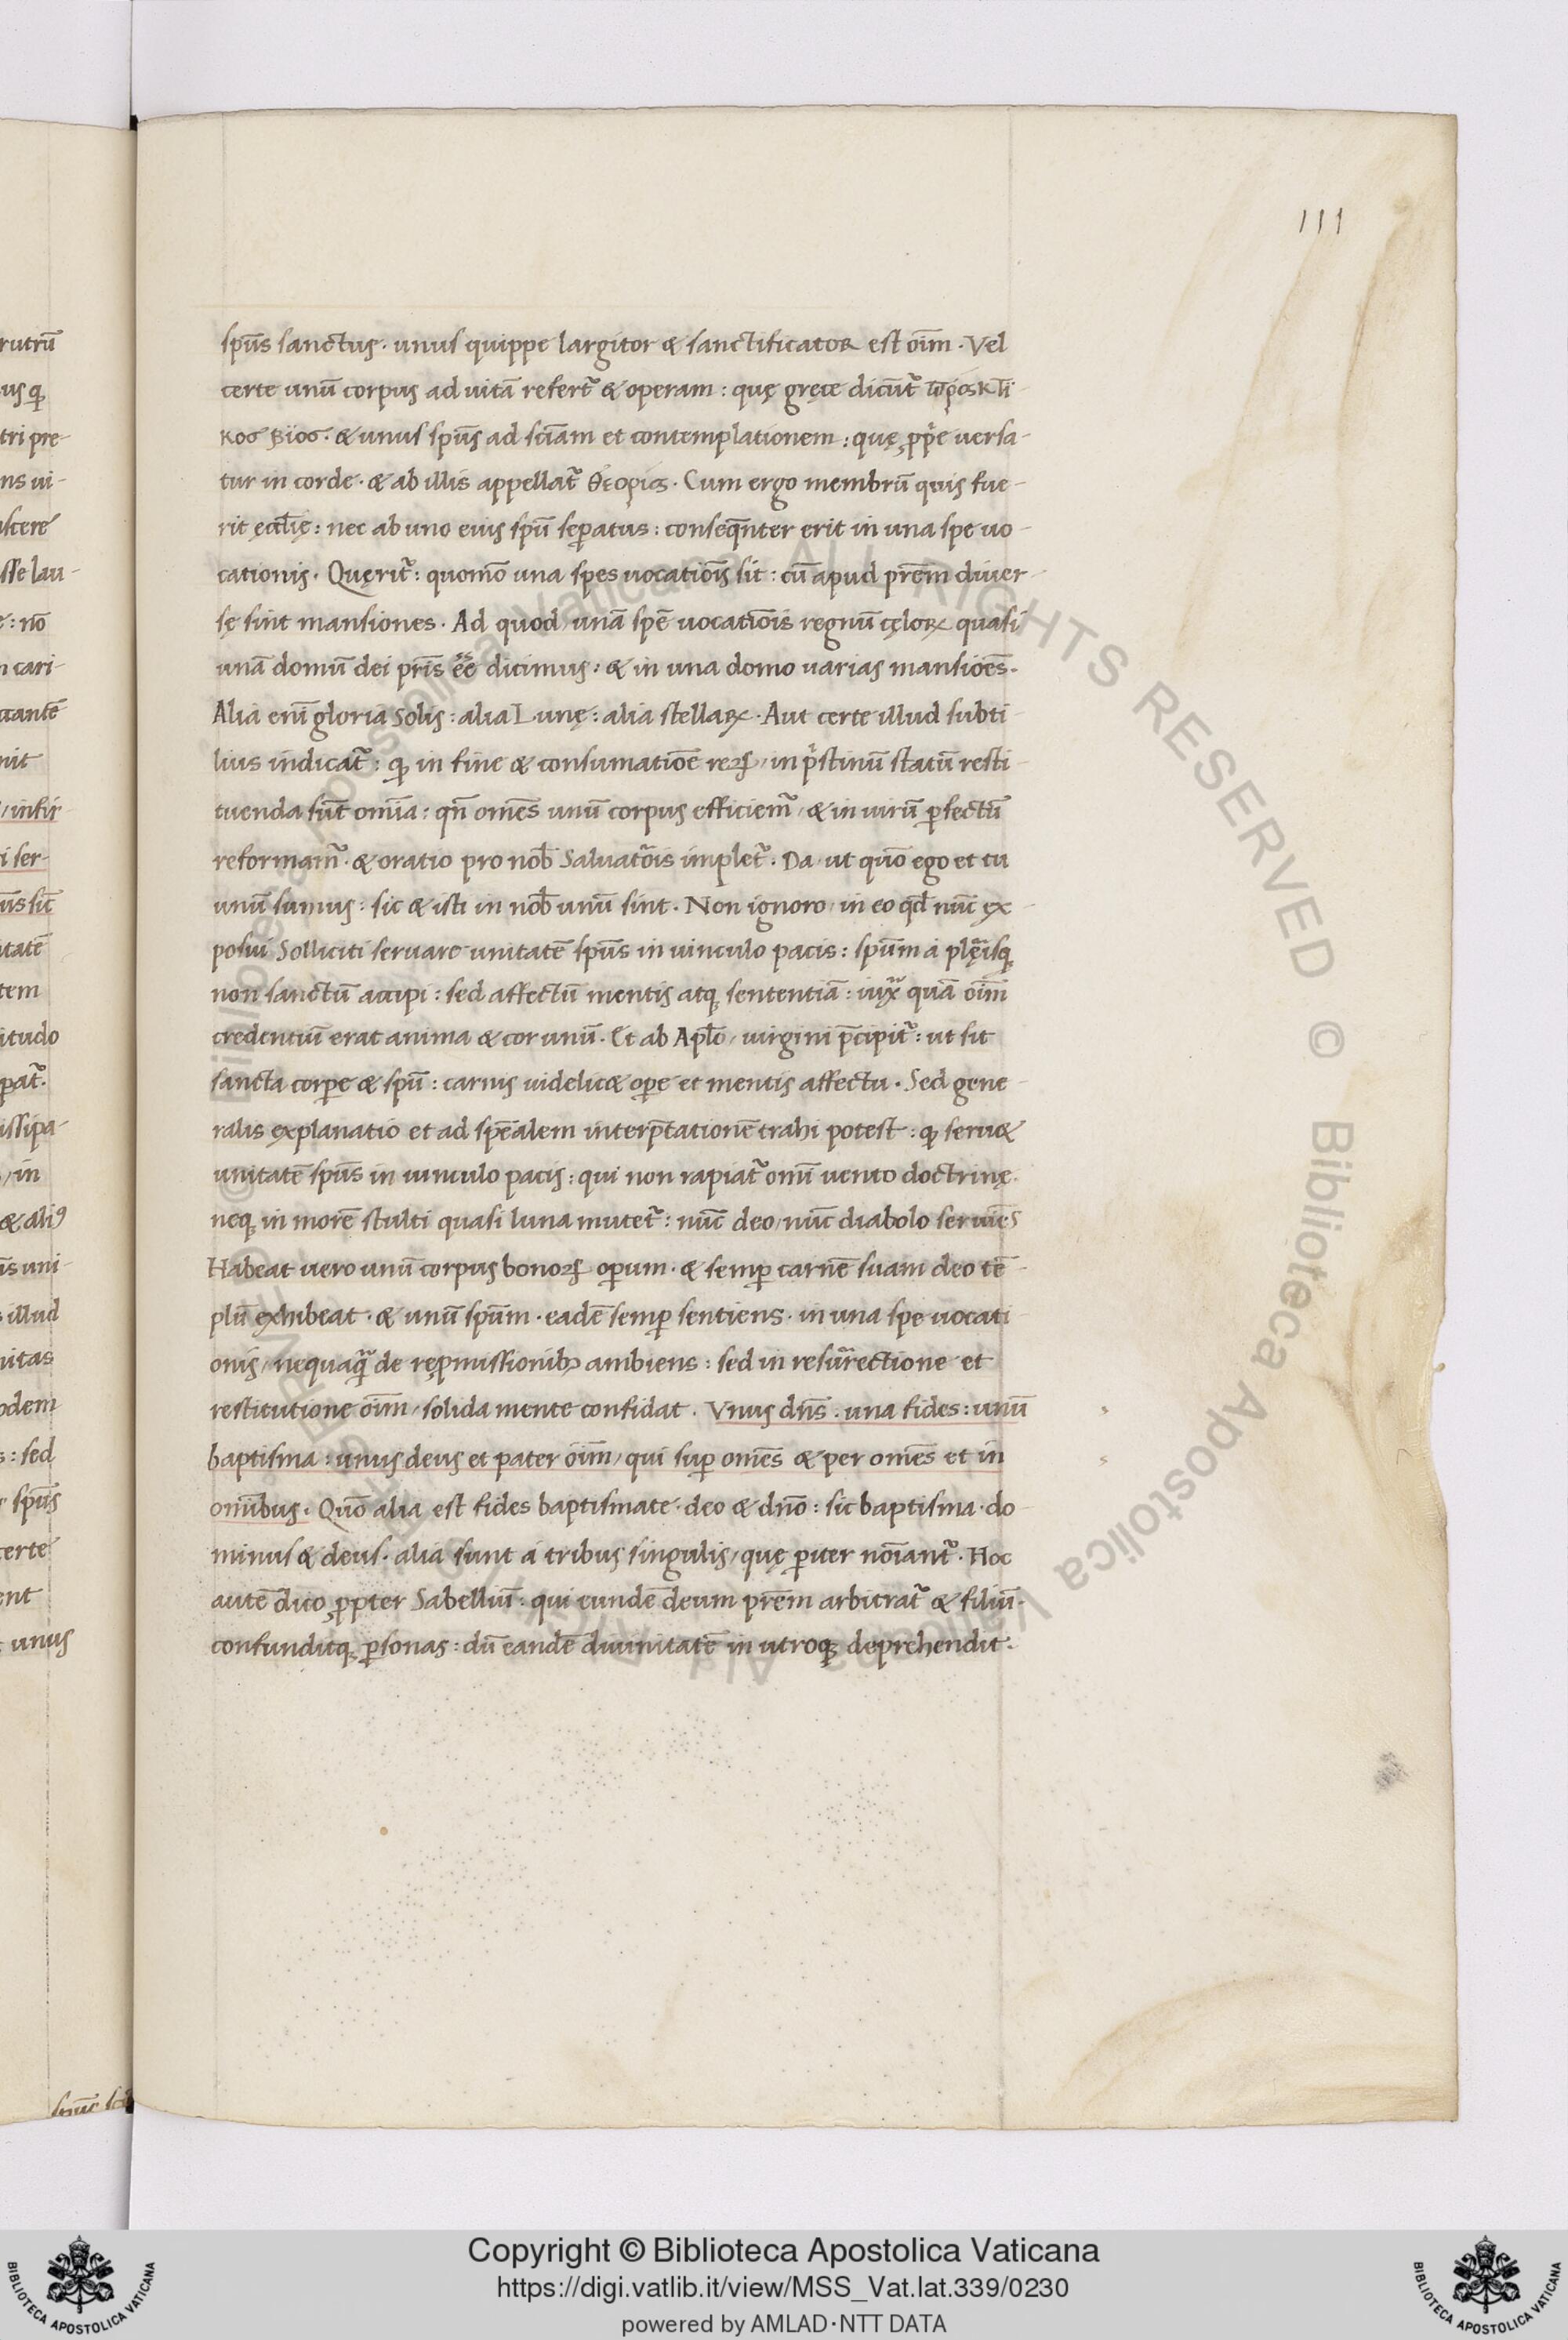 111
spūs sanctus. unus quippe largitor & sanctificator est oīm. Vel
certe unū corpus ad uitā refert̃ & operam: quę gręce dicūt̃ πρακτι-
κοσ βίοσ. & unus spūs ad sciām et contemplationem: quę ꝓpͥe uersa-
tur in corde. & ab illis appellat̃ θεορία. Cum ergo membrū quis fue-
rit ęccl̄ię: nec ab uno eius spū seꝑatus: conseq̄nter erit in una spe uo-
cationis. Quęrit̃: quomō una spes uocatiōis sit: cū apud prēm diuer-
sę sint mansiones. Ad quod, unā spē uocatiōis regnū cęloꝝ quasi
unā domū dei prīs eē̄ dicimus: & in una domo uarias mansiōes.
Alia enī gloria Solis: alia Lunę: alia stellaꝝ. Aut certe illud subti-
lius indicat̃: ꝙ in fine & consumatiōe reꝝ, in pͥstinū statū resti-
tuenda sūt omīa: qn̄ omēs unū corpus efficiem̃, & in uirū ꝑfectū
reformam̃. & oratio pro nob̄ Saluatōis implet̃. Da, ut quō ego et tu
unū sumus: sic & isti in nob̄ unū sint. Non ignoro, in eo qd̄ nūc ex-
posui Solliciti seruare unitatē spūs in uinculo pacis: spūm a plęͣisq̨
non sanctū accipi: sed affectū mentis atq̨ sententiā: iuxͣ quā oīm
credentiū erat anima & cor unū. Et ab Apl̄o, uirgini p̄cipit̃: ut sit
sancta corꝑe & spū: carnis uidelic& oꝑe et mentis affectu. Sed gene-
ralis explanatio et ad spēalem interp̄tationē trahi potest: ꝙ seru&
unitatē spūs in uinculo pacis: qui non rapiat̃ omī uento doctrinę.
neq̨ in morē stulti quasi luna mutet̃: nūc deo, nūc diabolo seruiēs
Habeat uero unū corpus bonoꝝ oꝑum. & semꝑ carnē suam deo tē-
plū exhibeat. & unū spūm. eadē semꝑ sentiens. in una spe uocati-
onis, nequaqͣ̄ de rępmissionibꝫ ambiens: sed in resurͣrectione et
restitutione oīm, solida mente confidat. Vnus dn̄s. una fides: unū
baptisma: unus deus et pater oīm, qui suꝑ omēs & per omēs et in
omībus. Quō alia est fides baptismate. deo & dn̄o: sic baptisma. do-
minus & deus. alia sunt a tribus singulis, quę ꝑiter noīant̃. Hoc
autē dico ꝓpter Sabelliū: qui eundē deum prēm arbitrat̃ & filiū.
confunditq̨ ꝑsonas: dū eandē diuinitatē in utroq̨ deprehendit.
Copyright © Biblioteca Apostolica Vaticana
https://digi.vatlib.it/view/MSS_Vat.lat.339/0230
powered by AMLAD·NTT DATA